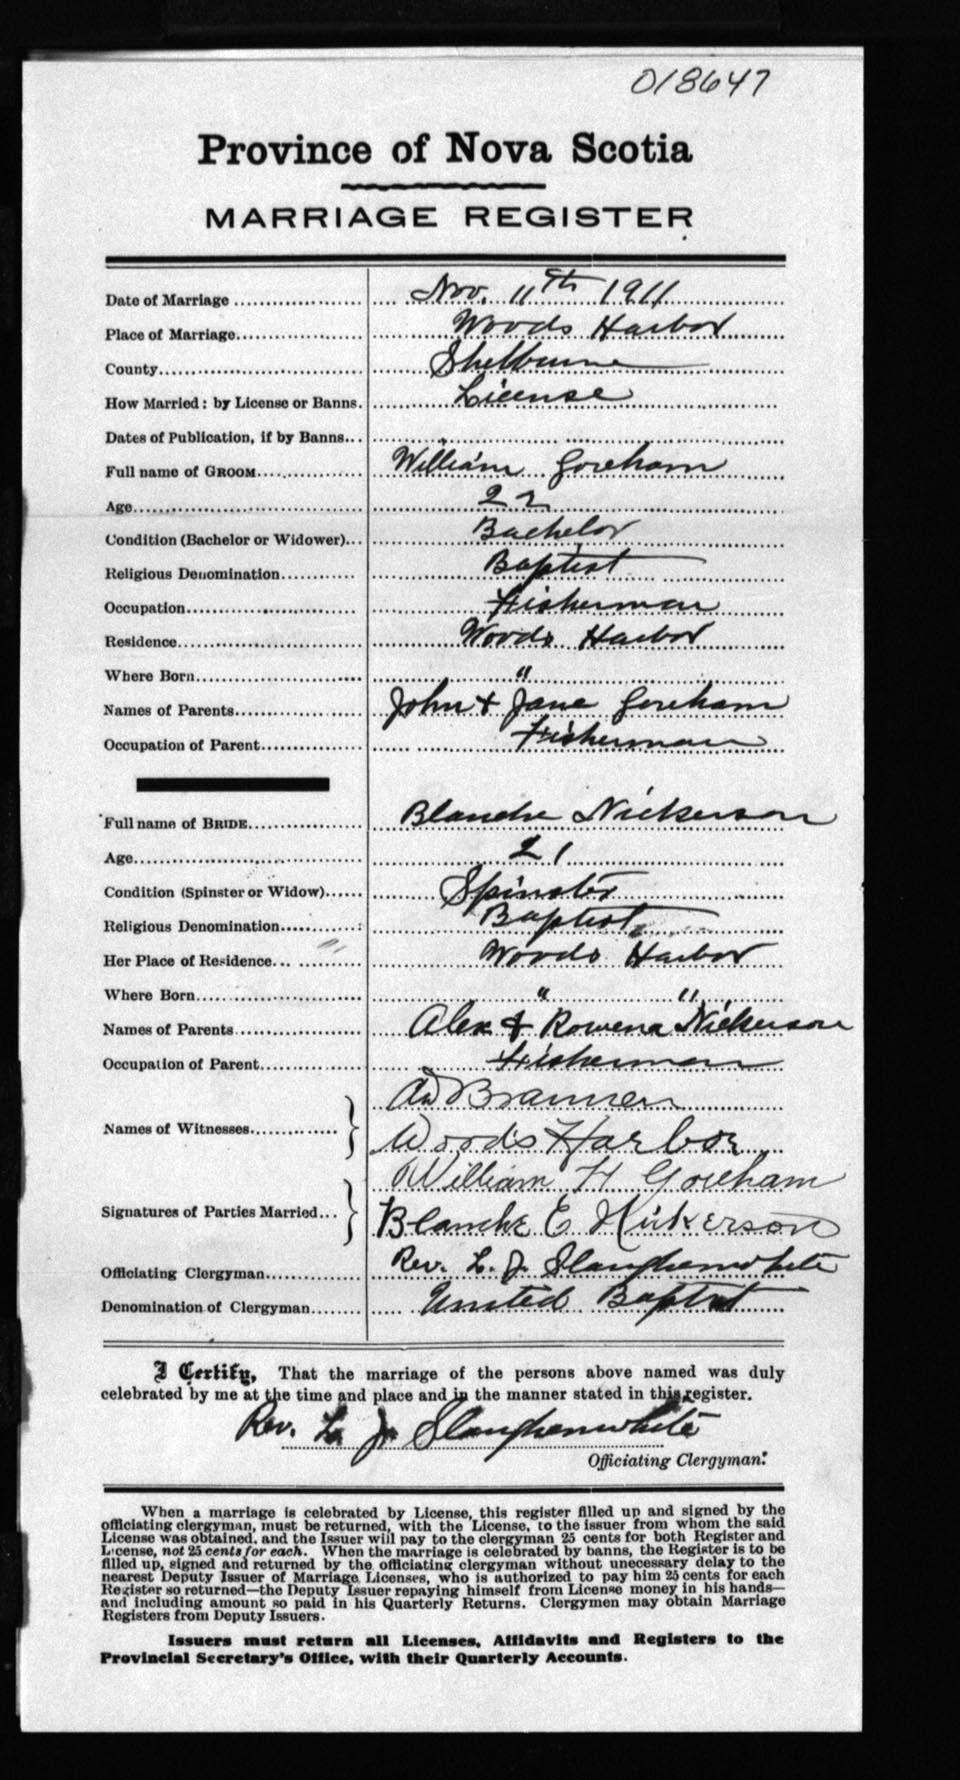 018647
Province of Nova Scotia
MARRIAGE REGISTER
Date of Marriage Nov. 11th 1911
Place of Marriage Woods Harbor
County Shelburne
How Married: by License or Banns. License
Dates of Publication, if by Banns
Full name of GROOM William Goreham
Age 22
Condition (Bachelor or Widower) Bachelor
Religious Denomination Baptist
Occupation Fisherman
Residence Woods Harbor
Where Born "
Names of Parents John & Jane Goreham
Occupation of Parent Fisherman
Full name of BRIDE Blanche Nickerson
Age 21
Condition (Spinster or Widow) Spinster
Religious Denomination Baptist
Her Place of Residence Woods Harbor
Where Born " "
Names of Parents Alex & Rowena Nickerson
Occupation of Parent Fisherman
Brannen
Names of Witnesses Woods Harbor
William H Goreham
Signatures of Parties Married Blanche E Nickerson
Officiating Clergyman Rev. L. J. Slaughenwhite
Denomination of Clergyman United Baptist
I Certify, That the marriage of the persons above named was duly
celebrated by me at the time and place and in the manner stated in this register.
Rev. L. J. Slaughenwhite
Officiating Clergyman.
When a marriage is celebrated by License, this register filled up and signed by the
officiating clergyman, must be returned, with the License, to the issuer from whom the said
License was obtained, and the Issuer will pay to the clergyman 25 cents for both Register and
License, not 25 cents for each. When the marriage is celebrated by banns, the Register is to be
filled up, signed and returned by the officiating clergyman without unecessary delay to the
nearest Deputy Issuer of Marriage Licenses, who is authorized to pay him 25 cents for each
Register so returned—the Deputy Issuer repaying himself from License money in his hands—
and including amount so paid in his Quarterly Returns. Clergymen may obtain Marriage
Registers from Deputy Issuers.
Issuers must return all Licenses, Affidavits and Registers to the
Provincial Secretary's Office, with their Quarterly Accounts.